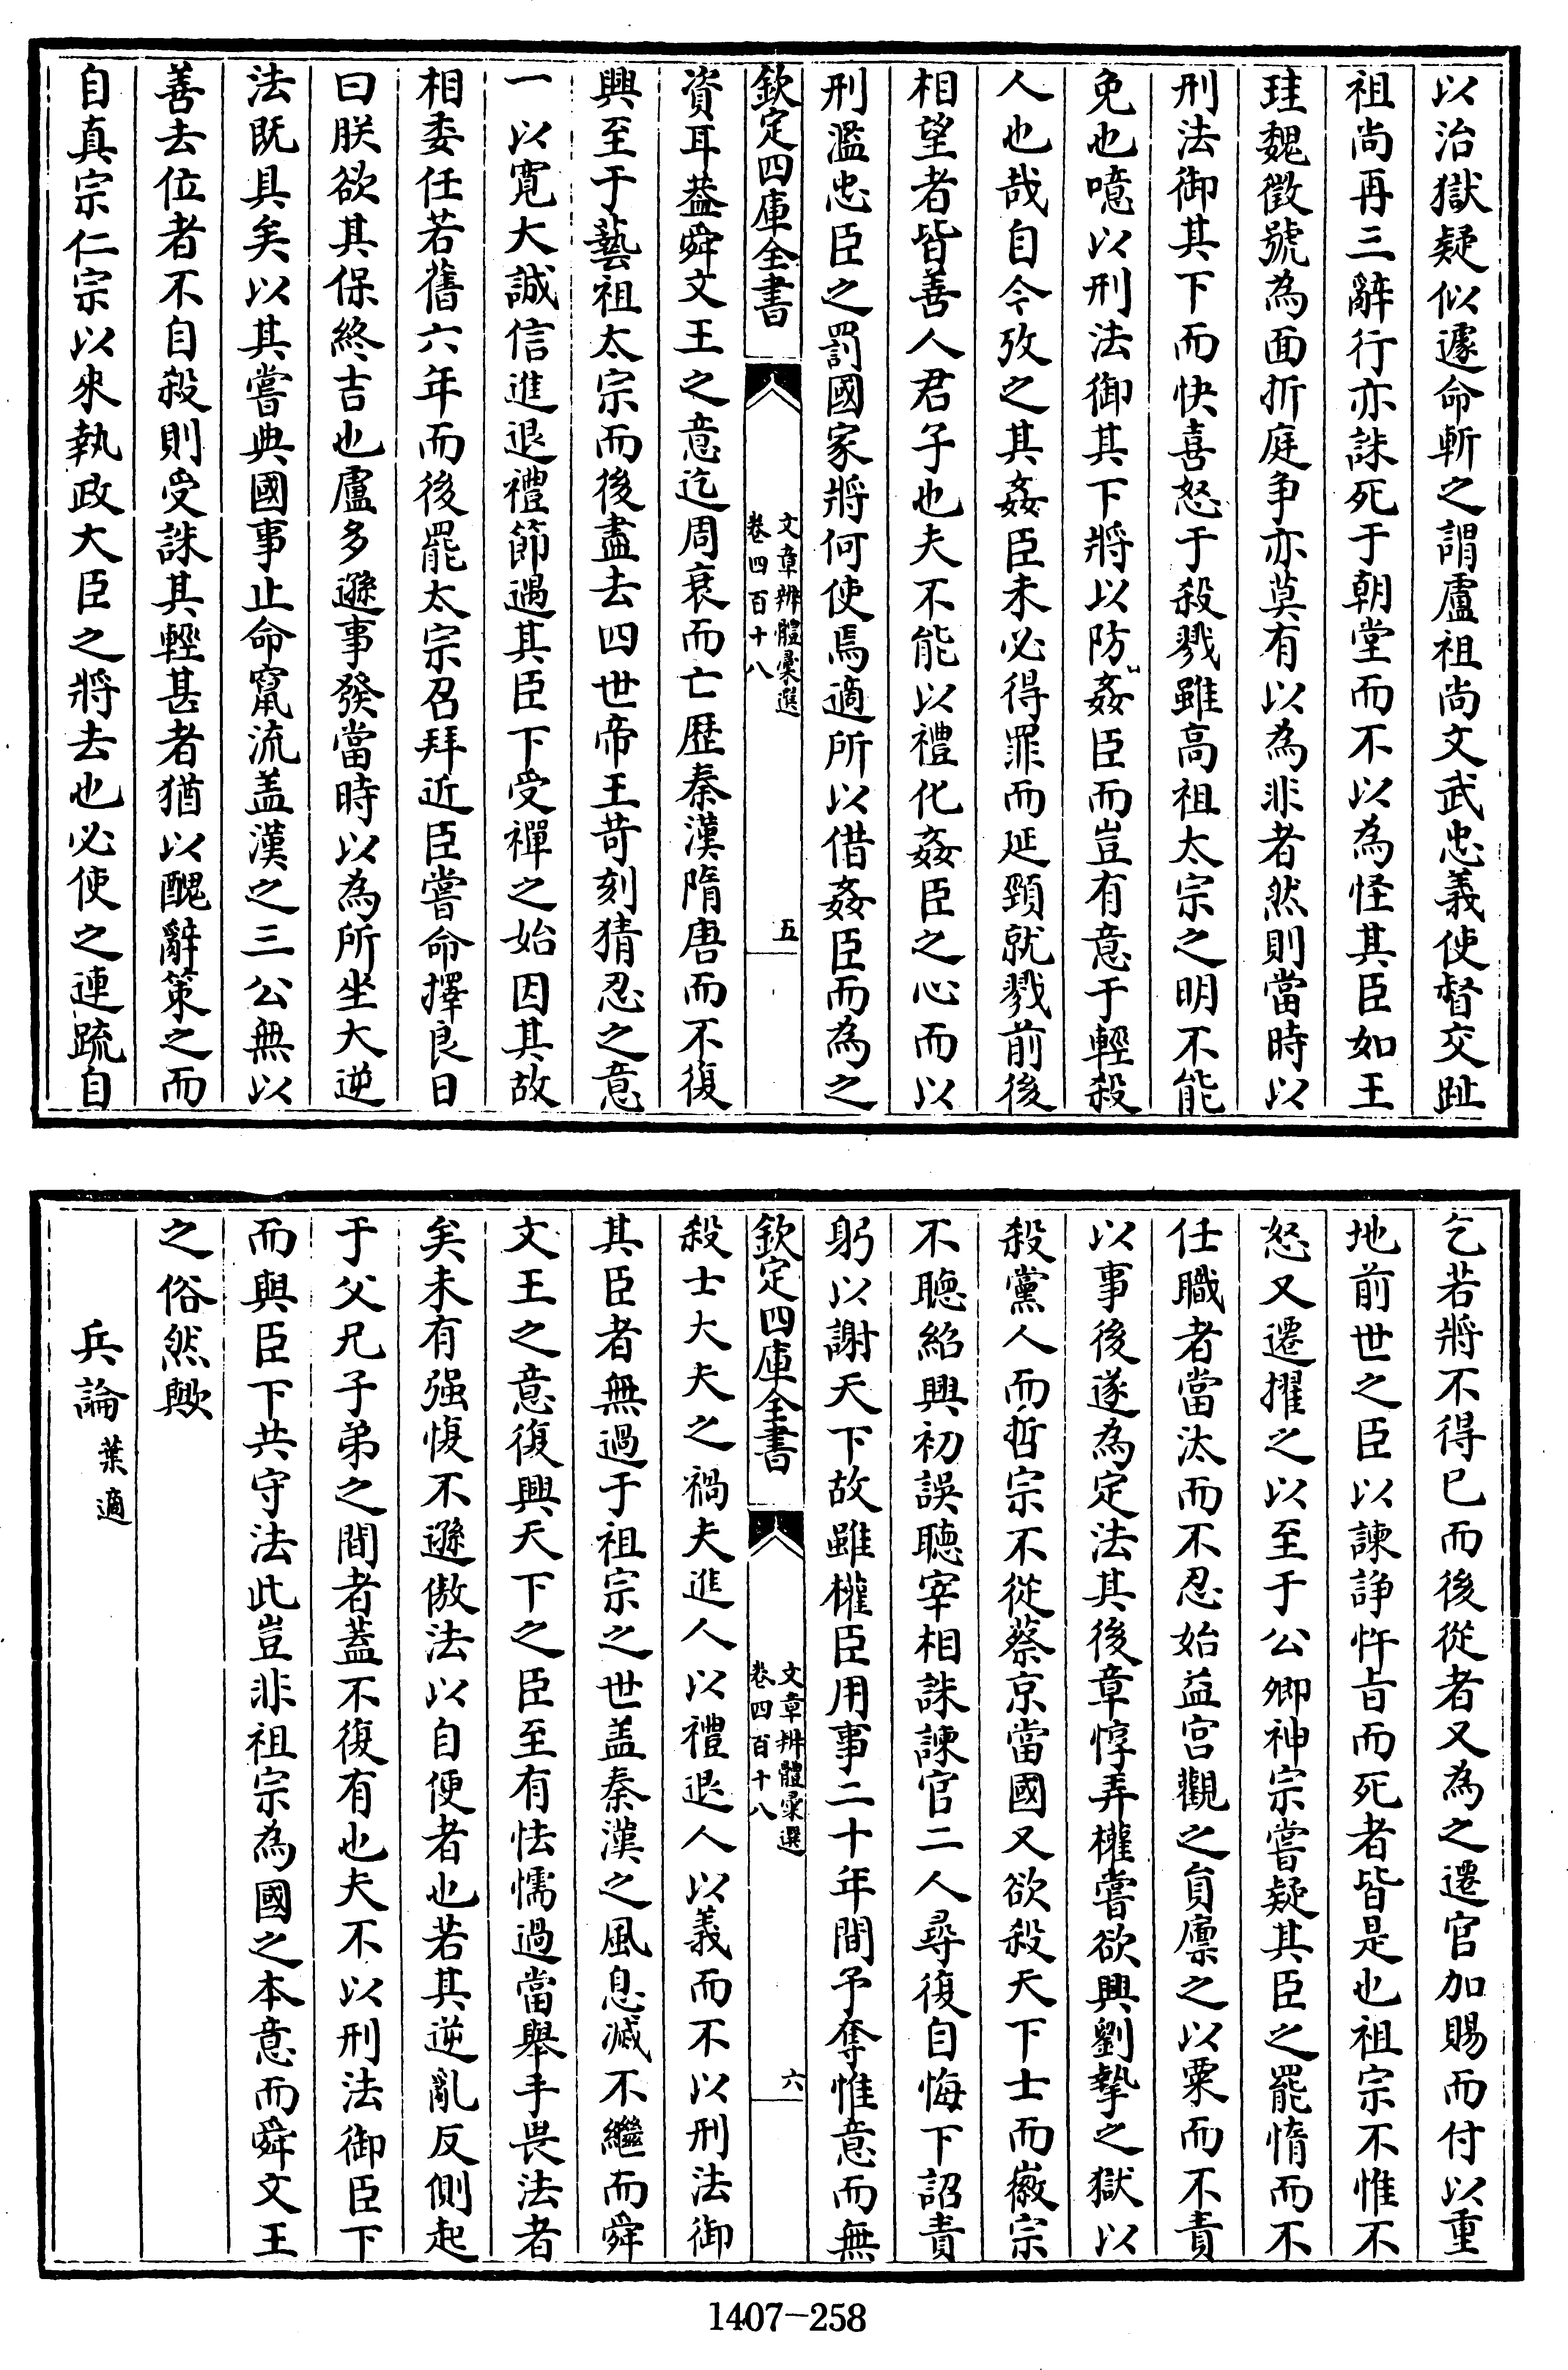 以治獄疑似遽命斬之謂盧祖尚文武忠義使督交趾
祖尚再三辭行亦誅死于朝堂而不以為怪其臣如王
珪魏徵號為面折庭争亦莫有以為非者然則當時以
刑法御其下而快喜怒于殺戮雖高祖太宗之明不能
免也噫以刑法御其下將以防姦臣而豈有意于輕殺
人也哉自今攷之其姦臣未必得罪而延頸就戮前後
相望者皆善人君子也夫不能以禮化姦臣之心而以
刑濫忠臣之罰國家將何使焉適所以借姦臣而為之
欽定四庫全書
文章辨體彙選
卷四百十八
五
資耳葢舜文王之意迄周衰而亡歴秦漢隋唐而不復
興至于藝祖太宗而後盡去四世帝王苛刻猜忍之意
一以寛大誠信進退禮節遇其臣下受禪之始因其故
相委任若舊六年而後罷太宗召拜近臣嘗命擇良日
曰朕欲其保終吉也盧多遜事發當時以為所坐大逆
法既具矣以其嘗典國事止命竄流盖漢之三公無以
善去位者不自殺則受誅其輕甚者猶以醜辭策之而
自真宗仁宗以來執政大臣之將去也必使之連疏自
乞若將不得已而後從者又為之遷官加賜而付以重
地前世之臣以諫諍忤旨而死者皆是也祖宗不惟不
怒又遷擢之以至于公卿神宗嘗疑其臣之罷惰而不
任職者當汰而不忍始益宫觀之員廪之以粟而不責
以事後遂為定法其後章惇弄權嘗欲興劉摯之獄以
殺黨人而哲宗不從蔡京當國又欲殺天下士而徽宗
不聽紹興初誤聽宰相誅諫官二人尋復自悔下詔責
躬以謝天下故雖權臣用事二十年間予奪惟意而無
欽定四庫全書
文章辨體彙選
卷四百十八
六
殺士大夫之禍夫進人以禮退人以義而不以刑法御
其臣者無過于祖宗之世盖秦漢之風息滅不繼而舜
文王之意復興天下之臣至有怯懦過當舉手畏法者
矣未有强愎不遜傲法以自便者也若其逆亂反側起
于父兄子弟之間者蓋不復有也夫不以刑法御臣下
而與臣下共守法此豈非祖宗為國之本意而舜文王
之俗然歟
兵論 葉適
1407-258